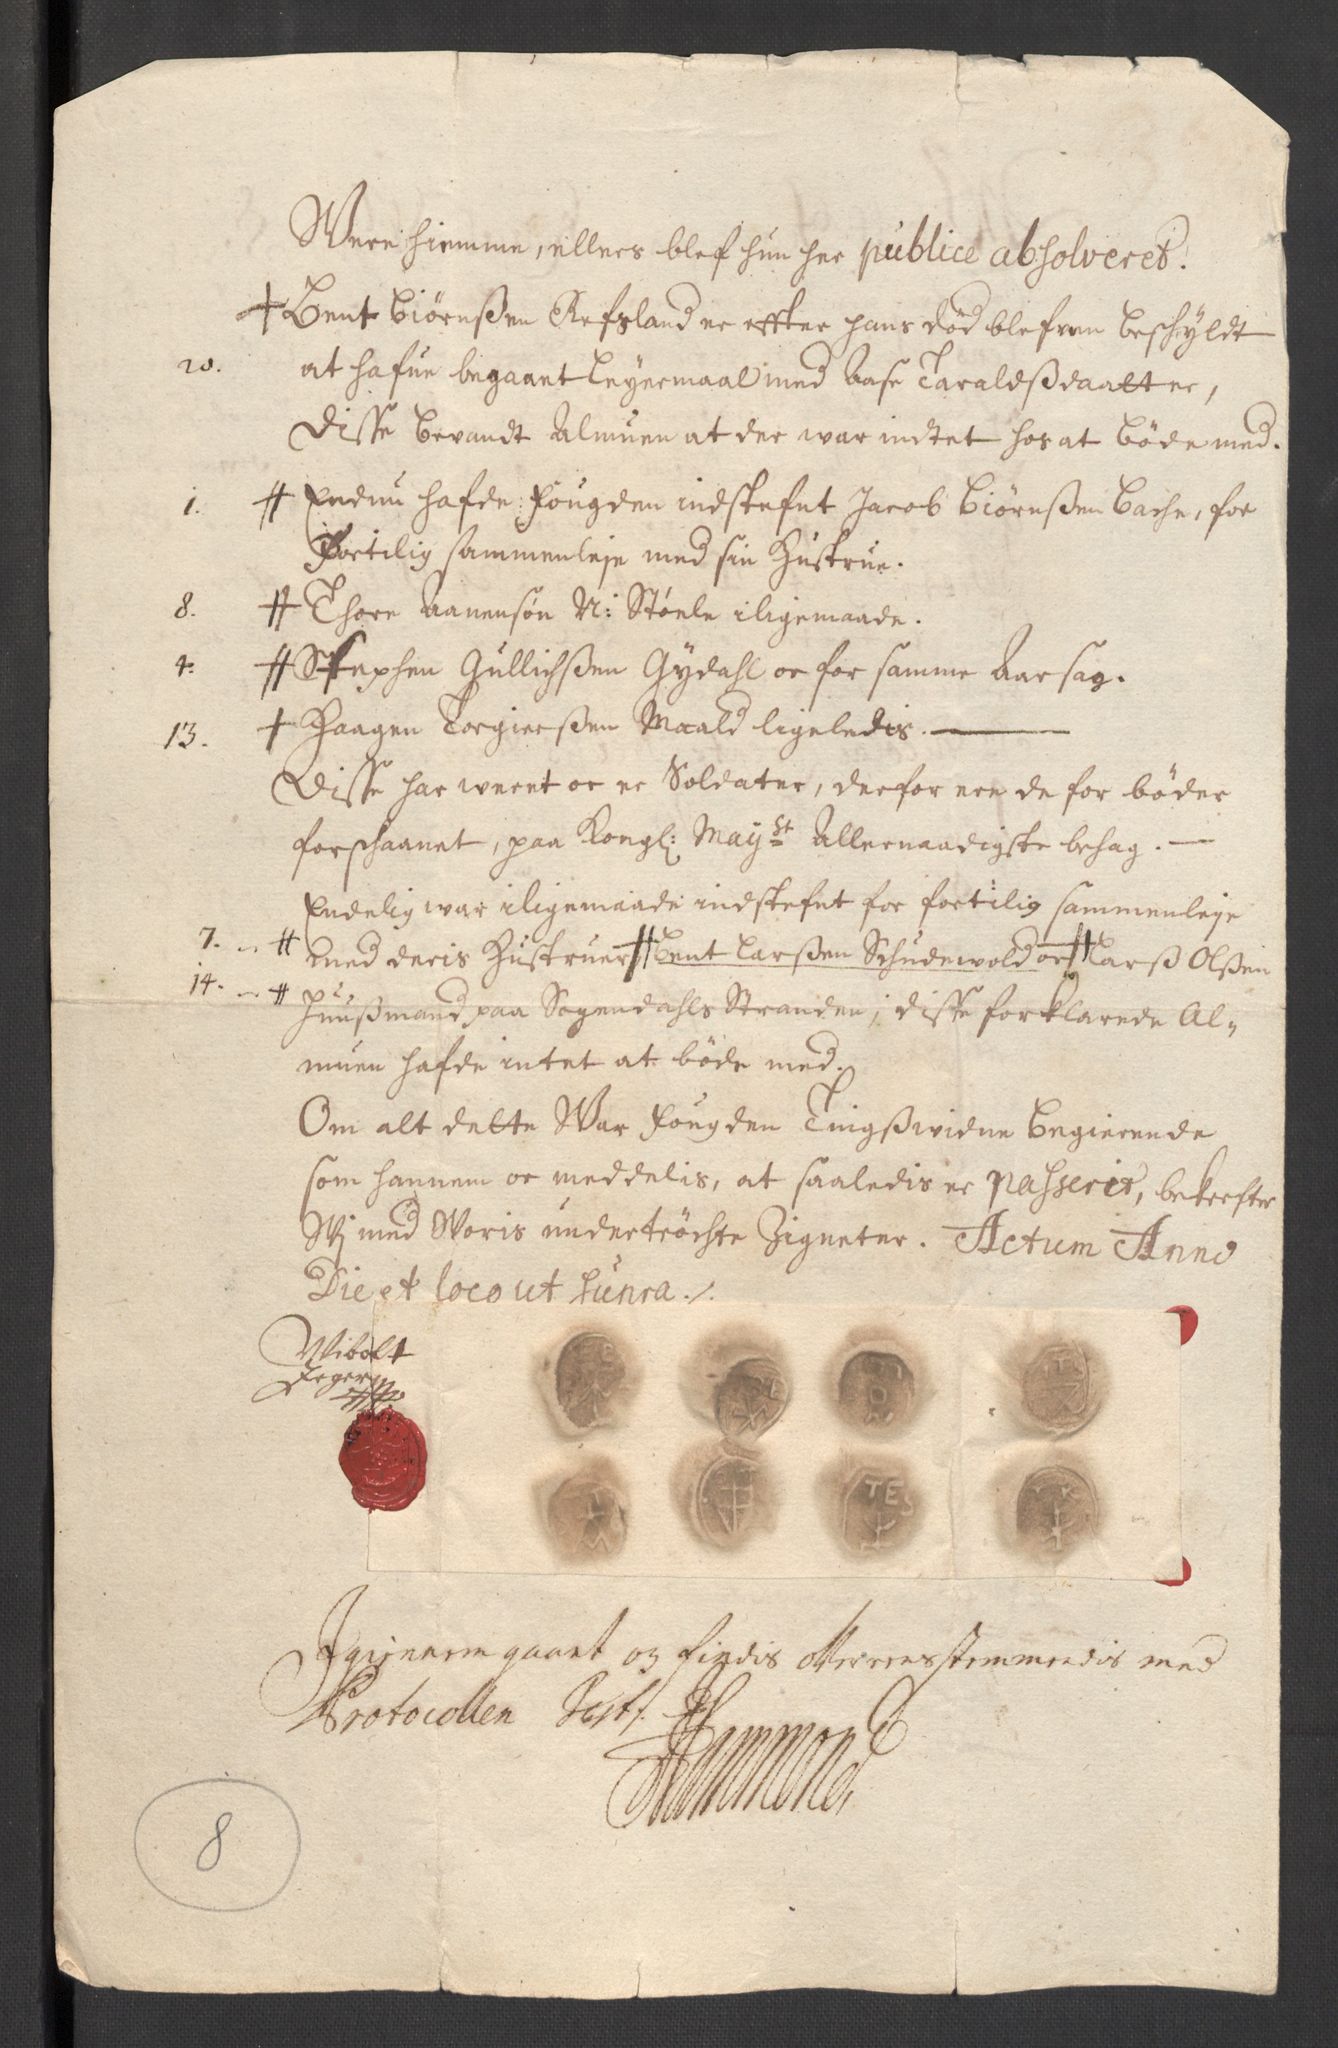 Were hiemme, ellers blef hun her publice absolveret.
Bent Biörnßen Refsland er effter hans död blefven beschyldt
20. at hafue begaaet leyermaal med Aase Taraldßdaatter,
Disse bevandt Almuen at der war indtet hos at böde med.
1. Endnu hafde Fougden indstefnt Jacob Biörnßen Bache, for
fortilig sammenleje med sin Hustrue.
8. Thore Aanensön N: Støele iligemaade.
4. Stephen Gullichßen Gydahl oc for samme Aarsag.
13. Haagen Torgierßen Maald ligeledis.
Disse har weret oc er Soldater, derfor ere de for böder
forschaanet, paa Kongl: Mayst Allernaadigste behag.
Endelig war iligemaade indstefnt for fortilig sammenleje
7. med deris Hustruer Bent Larßen Schudewold oc Larß Olßen
14. Huußmand paa Sogendahls Stranden, disse forklarede Al-
muen hafde intet at böde med.
Om alt dette War Fougden Tingßwidne Begierende
som hannem oc meddelis, at saaledis er passerit, bekrefter
Wj med Woris undertröchte Zigneter. Actum Anno
Die et loco ut supra ./.
Wibolt
Jeger
TES
Igiennemgaaet og findis offuereensstemmendis med
Protocollen Test.
Hammond
8